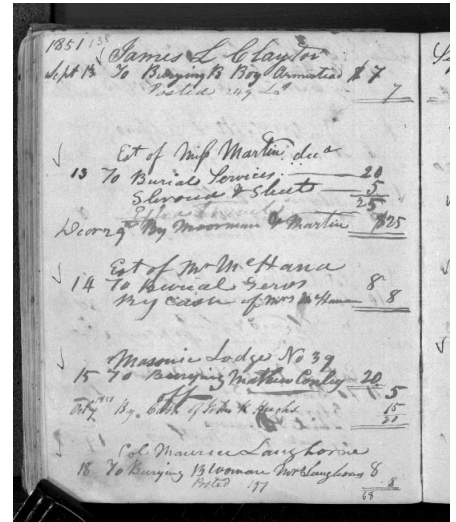 1851 138
James L Clayton
Sept 13 To Burying B Boy Armistead $ 7
Posted 249 7
Est of Miss Martin decd
13 To Burial Services 20
Shroud & Sheet 5
25
By Moorman & Martin $25
Est of Mr McHana
14 To Burial Servs 8
By Cash of Mrs McHana 8
Masonic Lodge No 39
15 To Burying Mathew Conley 20
off 5
By Cash of John R 15
20
Col. Maurice Langhorne
18 To Burying B Woman 8
Posted 157 8
68